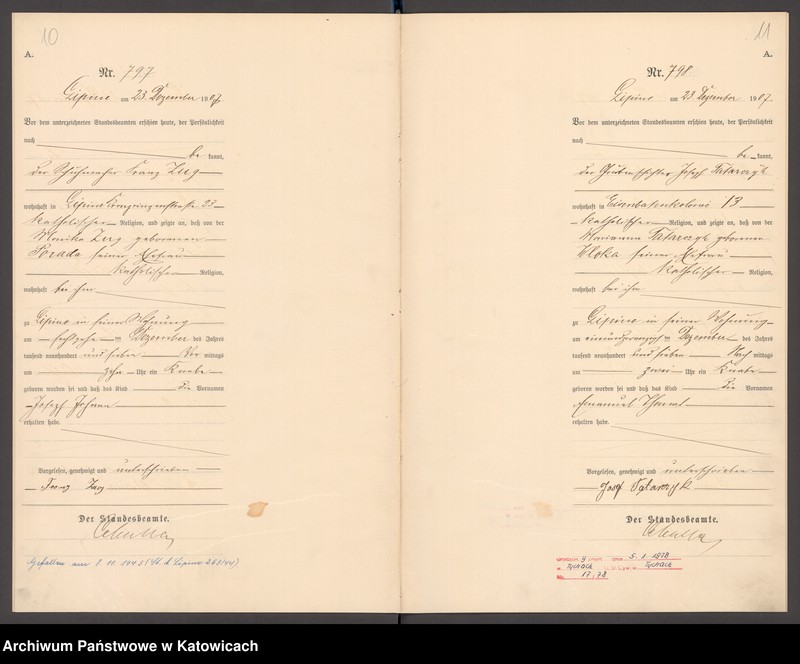 10
A.
Nr. 797
Lipine am 23. Dezember 1907.
Vor dem unterzeichneten Standesbeamten erschien heute, der Persönlichkeit
nach
be kannt,
der Schuhmacher Franz
wohnhaft in Lipine 23
katholischer Religion, und zeigte an, daß von der
Monika geborenen
Porada seiner Ehefrau
katholischer Religion,
wohnhaft bei ihm
zu Lipine in seiner Wohnung
am sechszehn ten Dezember des Jahres
tausend neunhundert und sieben Vor mittags
um zehn Uhr ein Knabe
geboren worden sei und daß das Kind die Vornamen
Josef Johann
erhalten habe.
Vorgelesen, genehmigt und unterschrieben
Franz
Der Standesbeamte.
Gefallen am 1943 Lipine
11
A.
Nr. 798
Lipine am 23 Dezember 1907.
Vor dem unterzeichneten Standesbeamten erschien heute, der Persönlichkeit
nach
be kannt,
der Josef Tatarczyk
wohnhaft in Eisenbahnkolonie 13
katholischer Religion, und zeigte an, daß von der
Marianna Tatarczyk geborenen
seiner Ehefrau
katholischer Religion,
wohnhaft bei ihm
zu Lipine in seiner Wohnung
am einundzwanzigsten Dezember des Jahres
tausend neunhundert und sieben Nach mittags
um zwei Uhr ein Knabe
geboren worden sei und daß das Kind die Vornamen
Emanuel
erhalten habe.
Vorgelesen, genehmigt und unterschrieben
Josef Tatarczyk
Der Standesbeamte.
5. 1. 1978
17/78
Archiwum Państwowe w Katowicach